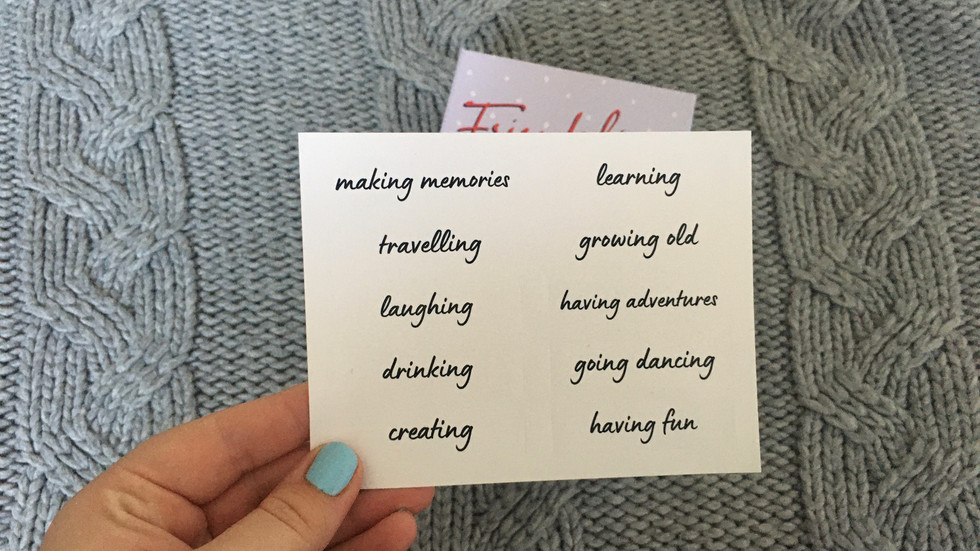 making memories
travelling
laughing
drinking
creating
learning
growing old
having adventures
going dancing
having fun